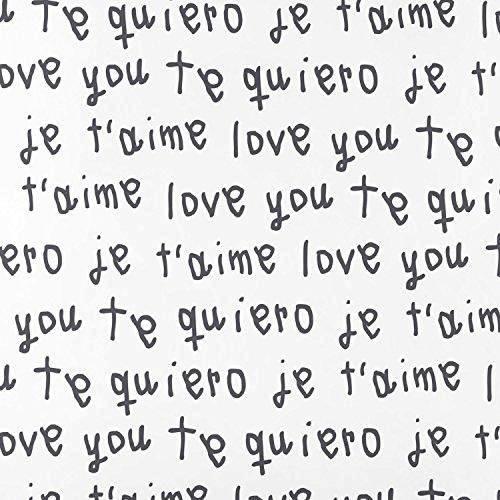 u te quiero je t'aime lo
ove you te quiero je t'
je t'aime love you te q
t'aime love you te qui
ero je t'aime love you t
you te quiero je t'aim
u te quiero je t'aime l
ove you te quiero je t'
je t'aime love you te